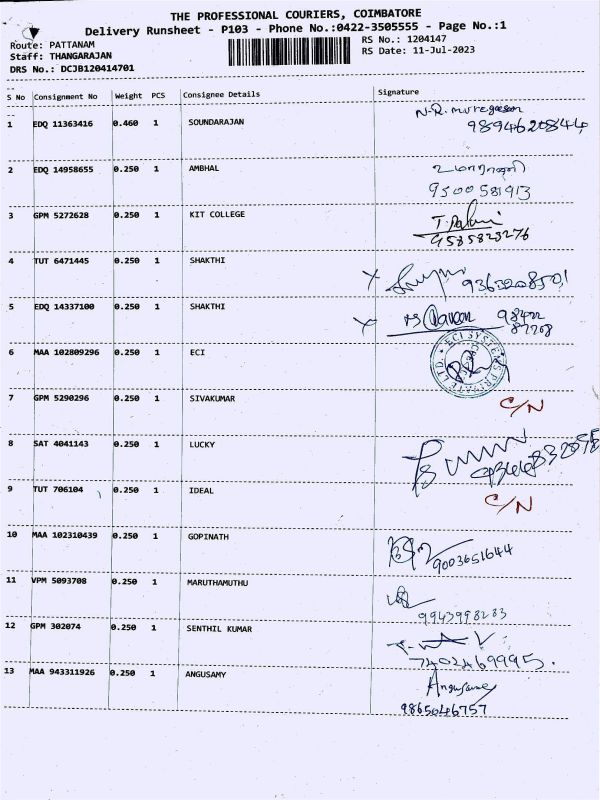 THE PROFESSIONAL COURIERS, COIMBATORE
Delivery Runsheet - P103 - Phone No.:0422-3505555 - Page No.:1
Route: PATTANAM
RS No.: 1204147
Staff: THANGARAJAN
RS Date: 11-Jul-2023
DRS No.: DCJB120414701
S No Consignment No Weight PCS Consignee Details Signature
1 EDQ 11363416 0.460 1 SOUNDARAJAN
9894620844
2 EDQ 14958655 0.250 1 AMBHAL
9500581913
3 GPM 5272628 0.250 1 KIT COLLEGE
9585823276
4 TUT 6471445 0.250 1 SHAKTHI
5 EDQ 14337100 0.250 1 SHAKTHI
6 MAA 102809296 0.250 1 ECI
ECI SYSTEMS PRIVATE LTD.
7 GPM 5290296 0.250 1 SIVAKUMAR C/N
8 SAT 4041143 0.250 1 LUCKY
9 TUT 706104 0.250 1 IDEAL C/N
10 MAA 102310439 0.250 1 GOPINATH
9003651644
11 VPM 5093708 0.250 1 MARUTHAMUTHU
9943998283
12 GPM 302074 0.250 1 SENTHIL KUMAR
7402469995.
13 MAA 943311926 0.250 1 ANGUSAMY Angusamy
9865046757